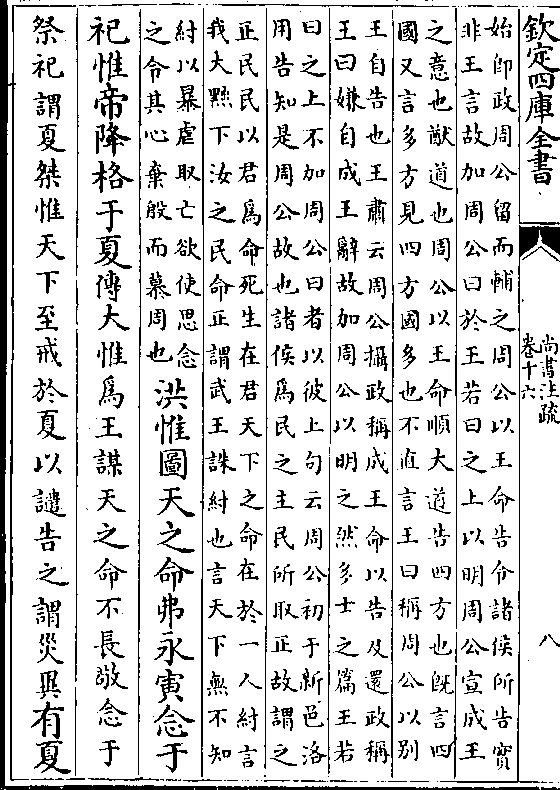 欽定四庫全書
尚書注疏
卷十六
八
始即政周公留而輔之周公以王命告令諸侯所告實
非王言故加周公曰於王若曰之上以明周公宣成王
之意也猷道也周公以王命順大道告四方也既言四
國又言多方見四方國多也不直言王曰稱周公以別
王自告也王肅云周公攝政稱成王命以告及還政稱
王曰嫌自成王辭故加周公以明之然多士之篇王若
曰之上不加周公曰者以彼上句云周公初于新邑洛
用告知是周公故也諸侯為民之主民所取正故謂之
正民民以君為命死生在君天下之命在於一人紂言
我大黜下汝之民命正謂武王誅紂也言天下無不知
紂以暴虐取亡欲使思念
之令其心棄殷而慕周也洪惟圖天之命弗永寅念于
祀惟帝降格于夏傳大惟為王謀天之命不長敬念于
祭祀謂夏桀惟天下至戒於夏以譴告之謂災異有夏